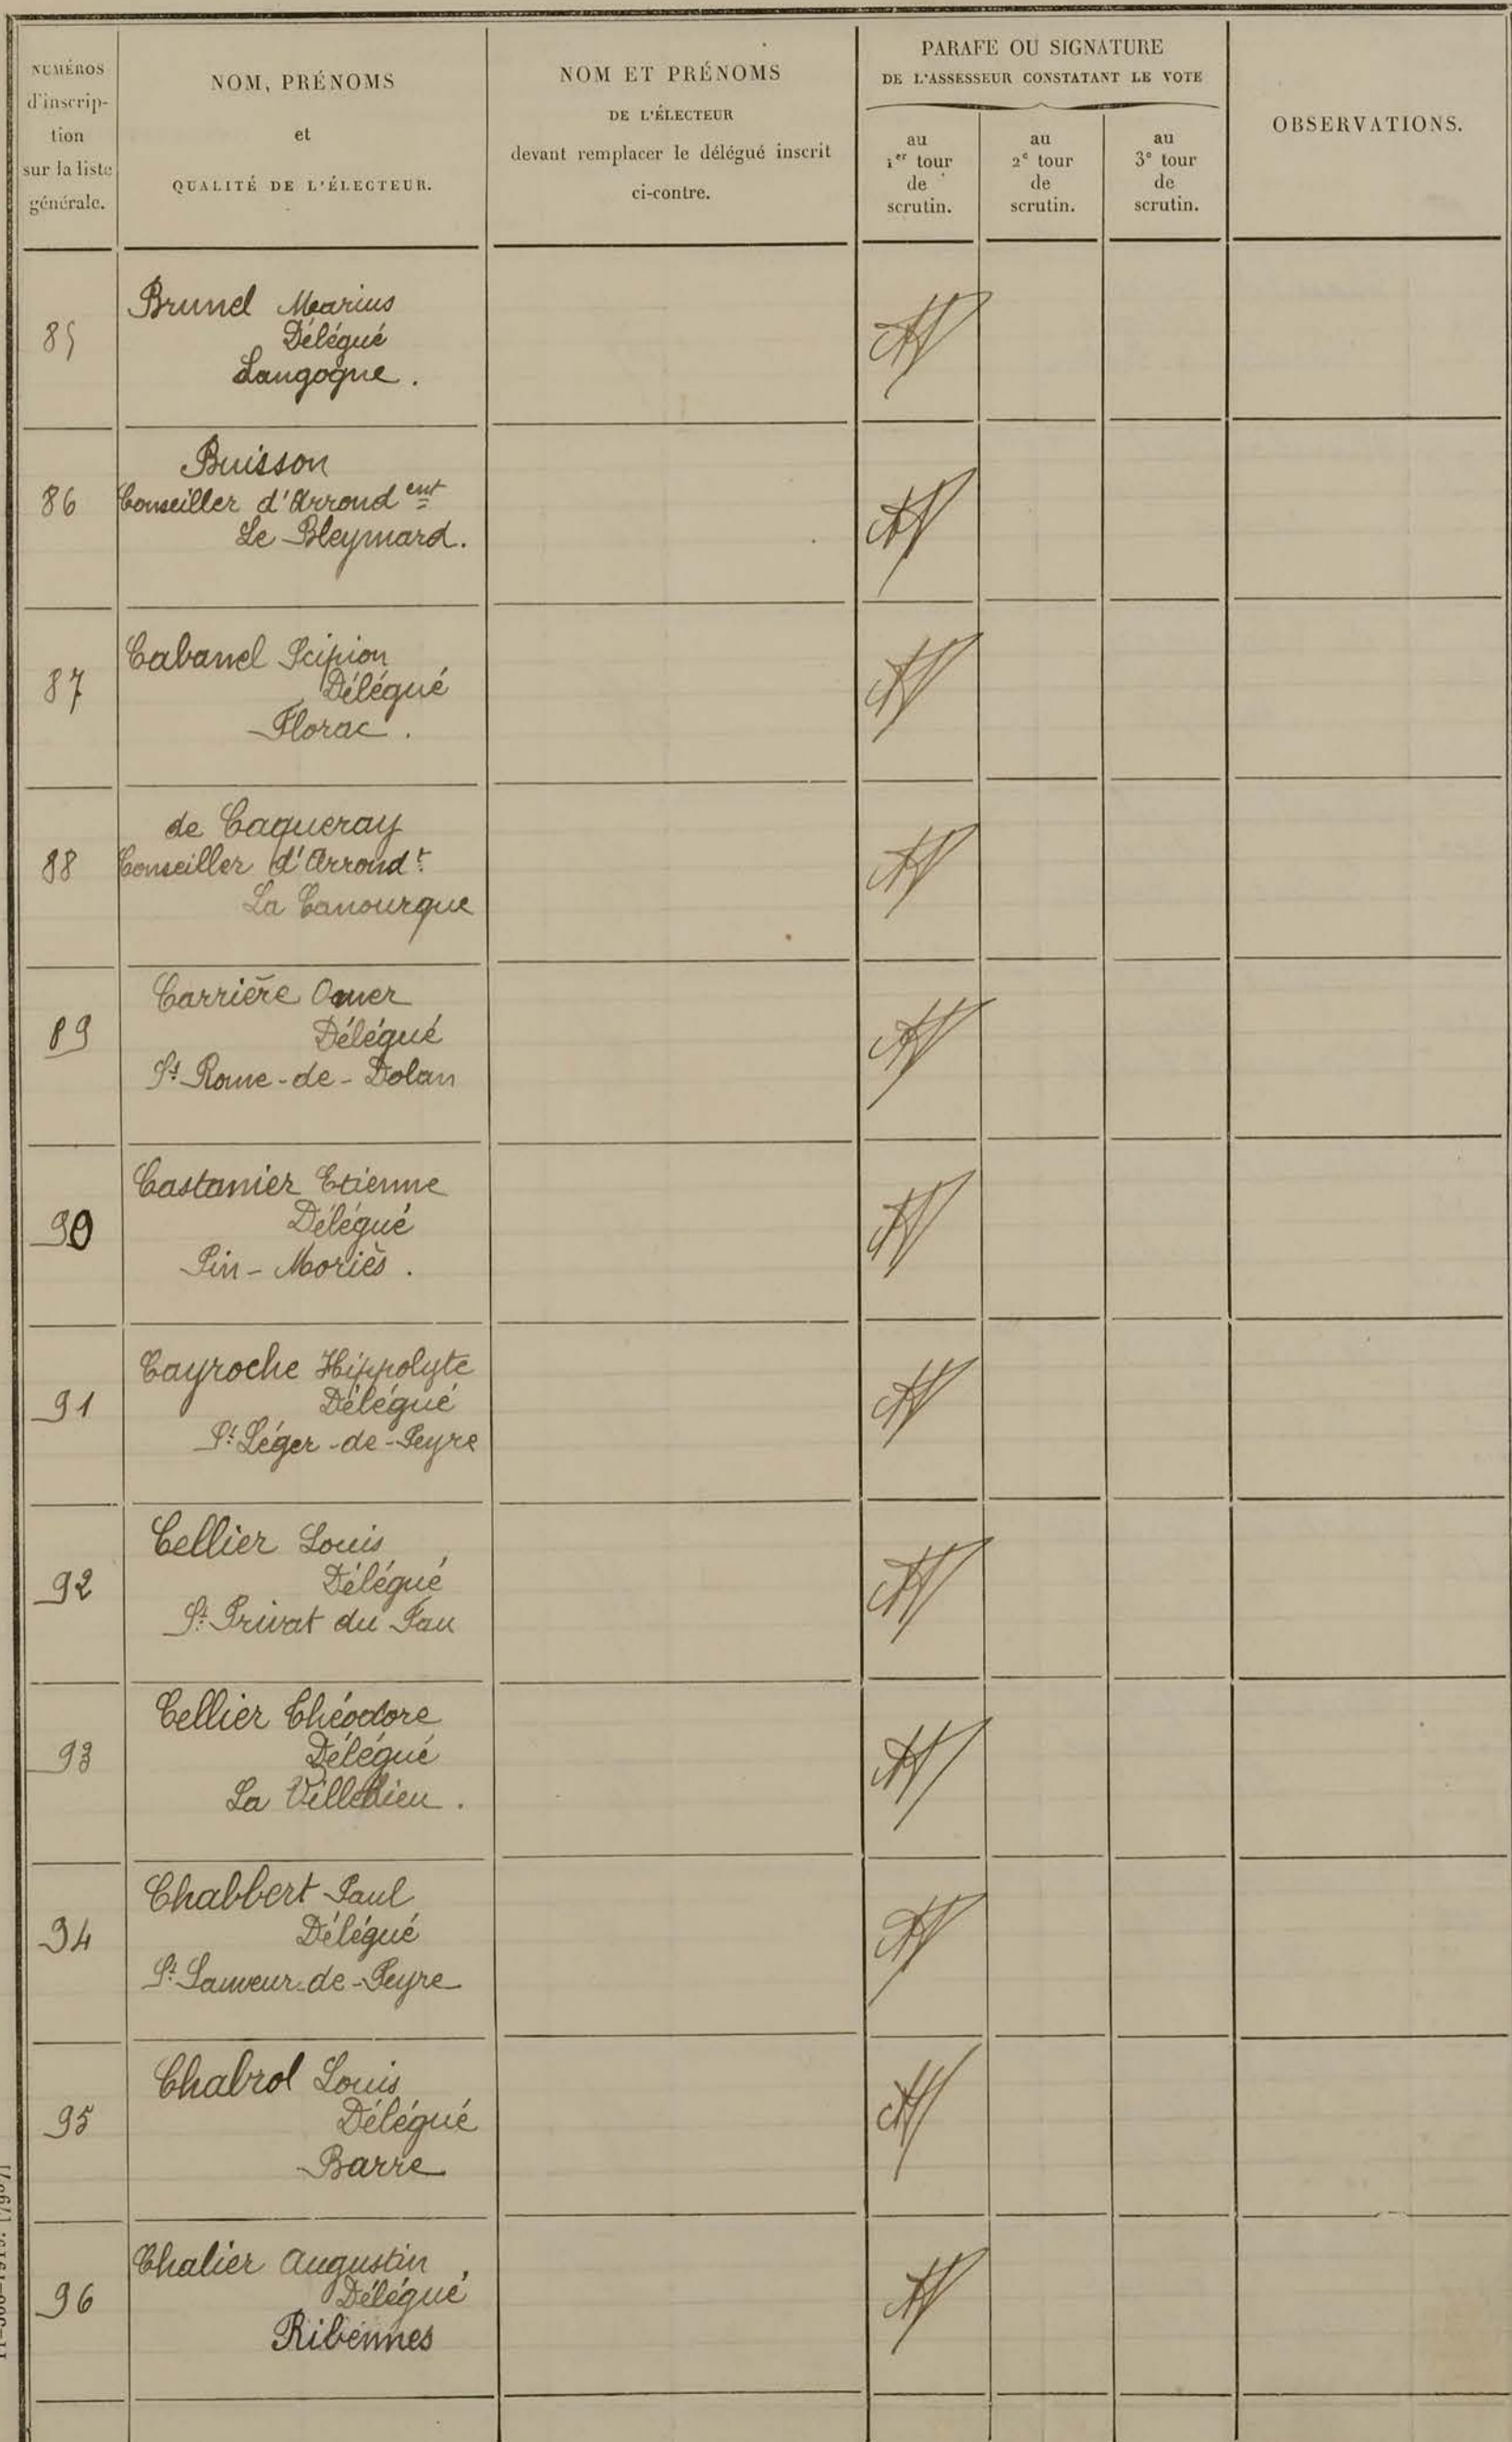 NUMÉROS
d'inscrip-
tion
sur la liste
générale.
NOM, PRÉNOMS
et
QUALITÉ DE L'ÉLECTEUR.
NOM ET PRÉNOMS
DE L'ÉLECTEUR
devant remplacer le délégué inscrit
ci-contre.
PARAFE OU SIGNATURE
DE L'ASSESSEUR CONSTATANT LE VOTE
au
1er tour
de
scrutin.
au
2e tour
de
scrutin.
au
3e tour
de
scrutin.
OBSERVATIONS.
85
Brunel Marius
Délégué
Langogne.
86
Buisson
Conseiller d'Arrondent
Le Bleymard.
87
Cabanel Scipion
Délégué
Florac.
88
de Caqueray
Conseiller d'Arrondt
La Canourgue
89
Carrière Omer
Délégué
St Rome-de-Dolan
90
Castanier Etienne
Délégué
Pin-Moriès.
91
Cayroche Hippolyte
Délégué
St Léger-de-Peyre
92
Cellier Louis
Délégué
St Privat du Fau
93
Cellier Théodore
Délégué
La Villedieu.
94
Chabbert Paul
Délégué
St Sauveur-de-Peyre
95
Chabrol Louis
Délégué
Barre
96
Chalier Augustin,
Délégué
Ribennes